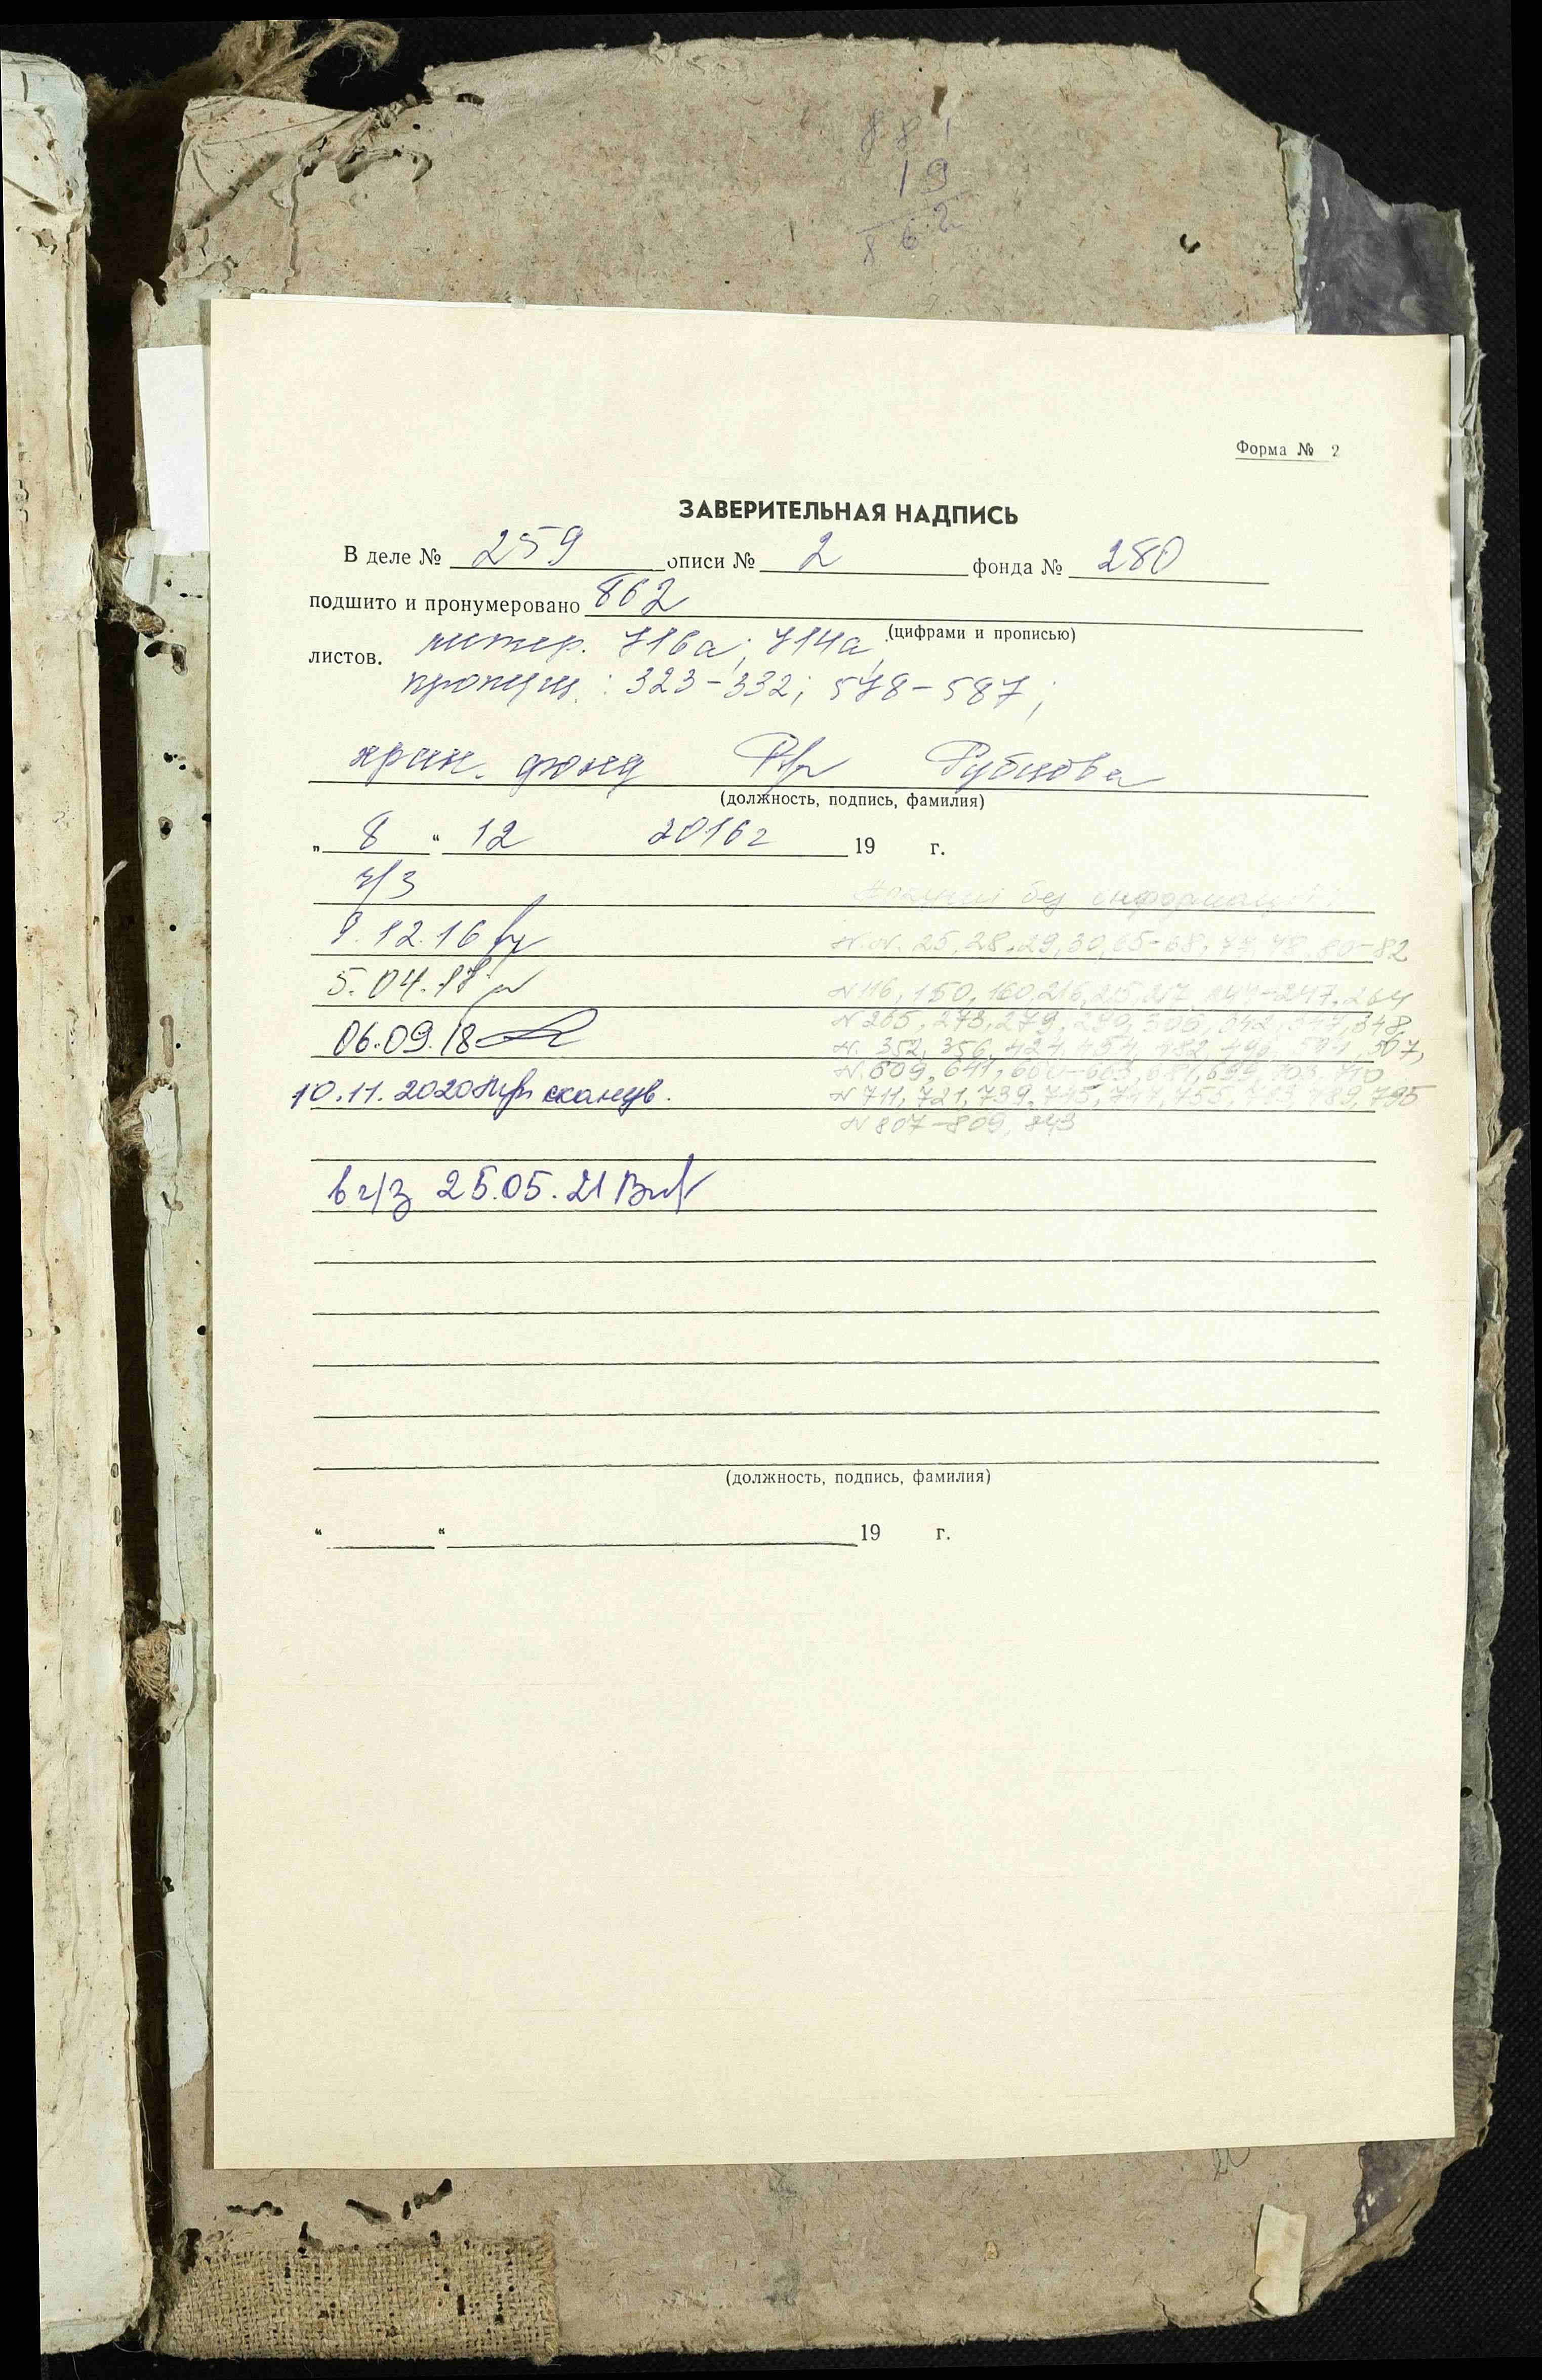 88
19
862
Форма № 2
ЗАВЕРИТЕЛЬНАЯ НАДПИСЬ
В деле № 259 описи № 2 фонда № 280
подшито и пронумеровано 862
(цифрами и прописью)
листов. литер. 716а; 714а,
пропущ.: 323-332; 578-587;
хран. фонд Рубцова
(должность, подпись, фамилия)
„ 8 “ 12 2016г 19 г.
ч/з
без информации
9.12.16
N.N. 25, 28, 29, 30, 65-68, 77, 78, 80-82
5.04.18
N 116, 150, 160, 216, 217, 244-247, 264
N 265, 273, 279, 290, 342, 347, 348,
06.09.18
N. 352, 356, 424, 454, 482, 507,
N. 609, 641, 681, 699, 703, 710
10.11.2020 сканув.
N 711, 721, 739, 745, 755, 795
N 807-809, 843
в ч/з 25.05.21
(должность, подпись, фамилия)
“ “ 19 г.